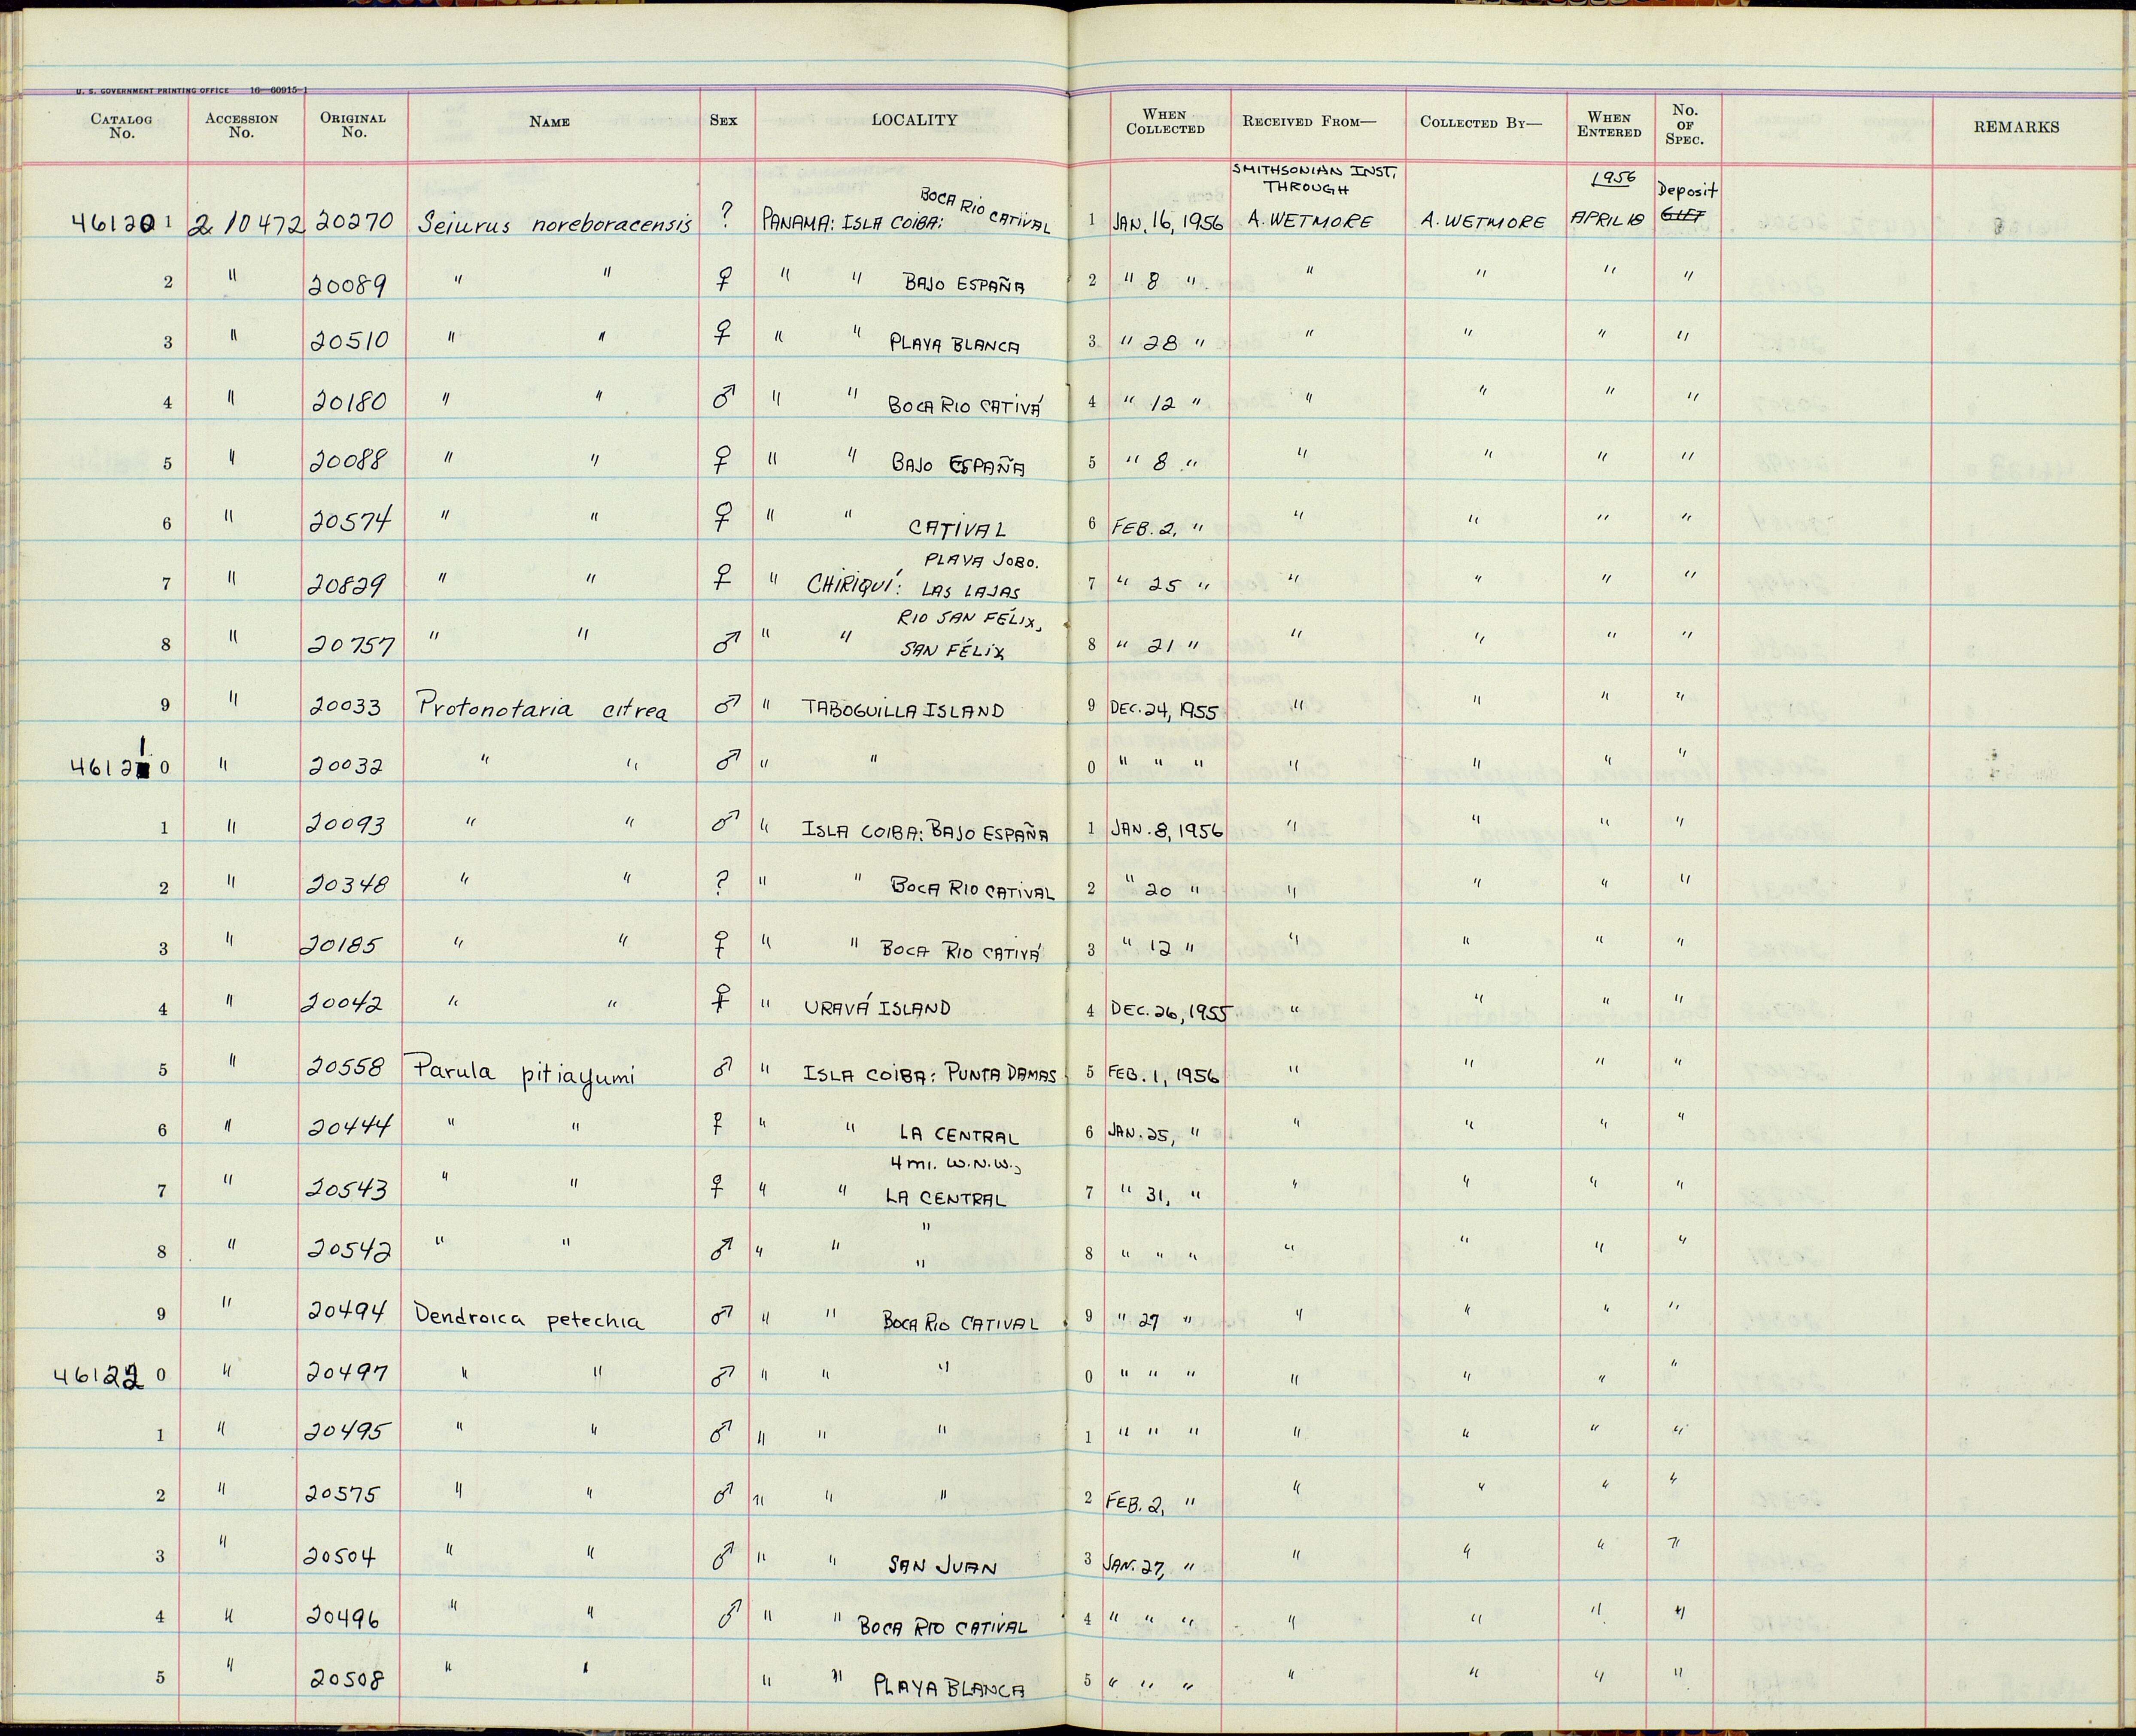 U. S. GOVERNMENT PRINTING OFFICE 16—60915-1
CATALOG No. ACCESSION No. ORIGINAL No. NAME SEX LOCALITY WHEN COLLECTED RECEIVED FROM— COLLECTED BY— WHEN ENTERED No. OF SPEC. REMARKS
SMITHSONIAN INST. THROUGH 1956 Deposit
461201 210472 20270 Seiurus noreboracensis ? PANAMA: ISLA COIBA: BOCA RIO CATIVAL 1 JAN. 16, 1956 A. WETMORE A. WETMORE APRIL 18 GIFT
2 " 20089 " " ♀ " " BAJO ESPAÑA 2 " 8 " " " " "
3 " 20510 " " ♀ " " PLAYA BLANCA 3 " 28 " " " " "
4 " 20180 " " ♂ " " BOCA RIO CATIVÁ 4 " 12 " " " " "
5 " 20088 " " ♀ " " BAJO ESPAÑA 5 " 8 " " " " "
6 " 20574 " " ♀ " " CATIVAL 6 FEB. 2, " " " " "
PLAYA JOBO.
7 " 20829 " " ♀ " CHIRIQUÍ: LAS LAJAS 7 " 25 " " " " "
RIO SAN FÉLIX,
8 " 20757 " " ♂ " " SAN FÉLIX 8 " 21 " " " " "
9 " 20033 Protonotaria citrea ♂ " TABOGUILLA ISLAND 9 DEC. 24, 1955 " " " "
461210 " 20032 " " ♂ " " 0 " " " " " " "
1 " 20093 " " ♂ " ISLA COIBA: BAJO ESPAÑA 1 JAN. 8, 1956 " " " "
2 " 20348 " " ? " " BOCA RIO CATIVAL 2 " 20 " " " " "
3 " 20185 " " ♀ " " BOCA RIO CATIVÁ 3 " 12 " " " " "
4 " 20042 " " ♀ " URAVÁ ISLAND 4 DEC. 26, 1955 " " " "
5 " 20558 Parula pitiayumi ♂ " ISLA COIBA: PUNTA DAMAS 5 FEB. 1, 1956 " " " "
6 " 20444 " " ♀ " " LA CENTRAL 6 JAN. 25, " " " " "
4 mi. W.N.W.,
7 " 20543 " " ♀ " " LA CENTRAL 7 " 31, " " " " "
"
8 " 20542 " " ♂ " " " 8 " " " " " " "
9 " 20494 Dendroica petechia ♂ " " BOCA RIO CATIVAL 9 " 27 " " " " "
461220 " 20497 " " ♂ " " " 0 " " " " " " "
1 " 20495 " " ♂ " " " 1 " " " " " " "
2 " 20575 " " ♂ " " " 2 FEB. 2, " " " " "
3 " 20504 " " ♂ " " SAN JUAN 3 JAN. 27, " " " " "
4 " 20496 " " ♂ " " BOCA RIO CATIVAL 4 " " " " " " "
5 " 20508 " " " " PLAYA BLANCA 5 " " " " " " "